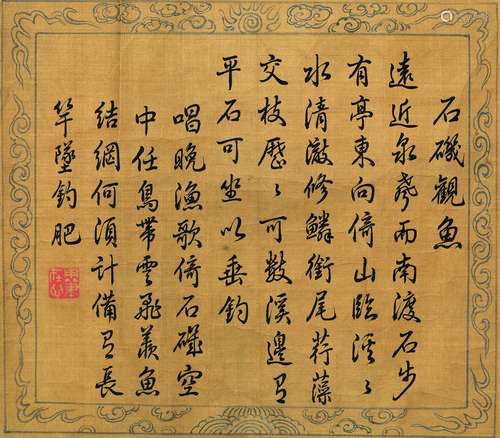 石磯觀魚
遠近泉聲而南渡石步
有亭東向倚山臨溪〻
水清澈修鱗銜尾荇藻
交枝歷〻可數溪邊有
平石可坐以垂釣
唱晚漁歌傍石磯空
中任鳥帶雲飛羨魚
結網何須計備有長
竿墜釣肥